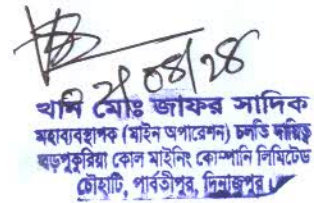 খান মোঃ জাফর সাদিক
মহাব্যবস্থাপক (মাইন অপারেশন) চলতি দায়িত্ব
বড়পুকুরিয়া কোল মাইনিং কোম্পানি লিমিটেড
চৌহাটি, পার্বতীপুর, দিনাজপুর।